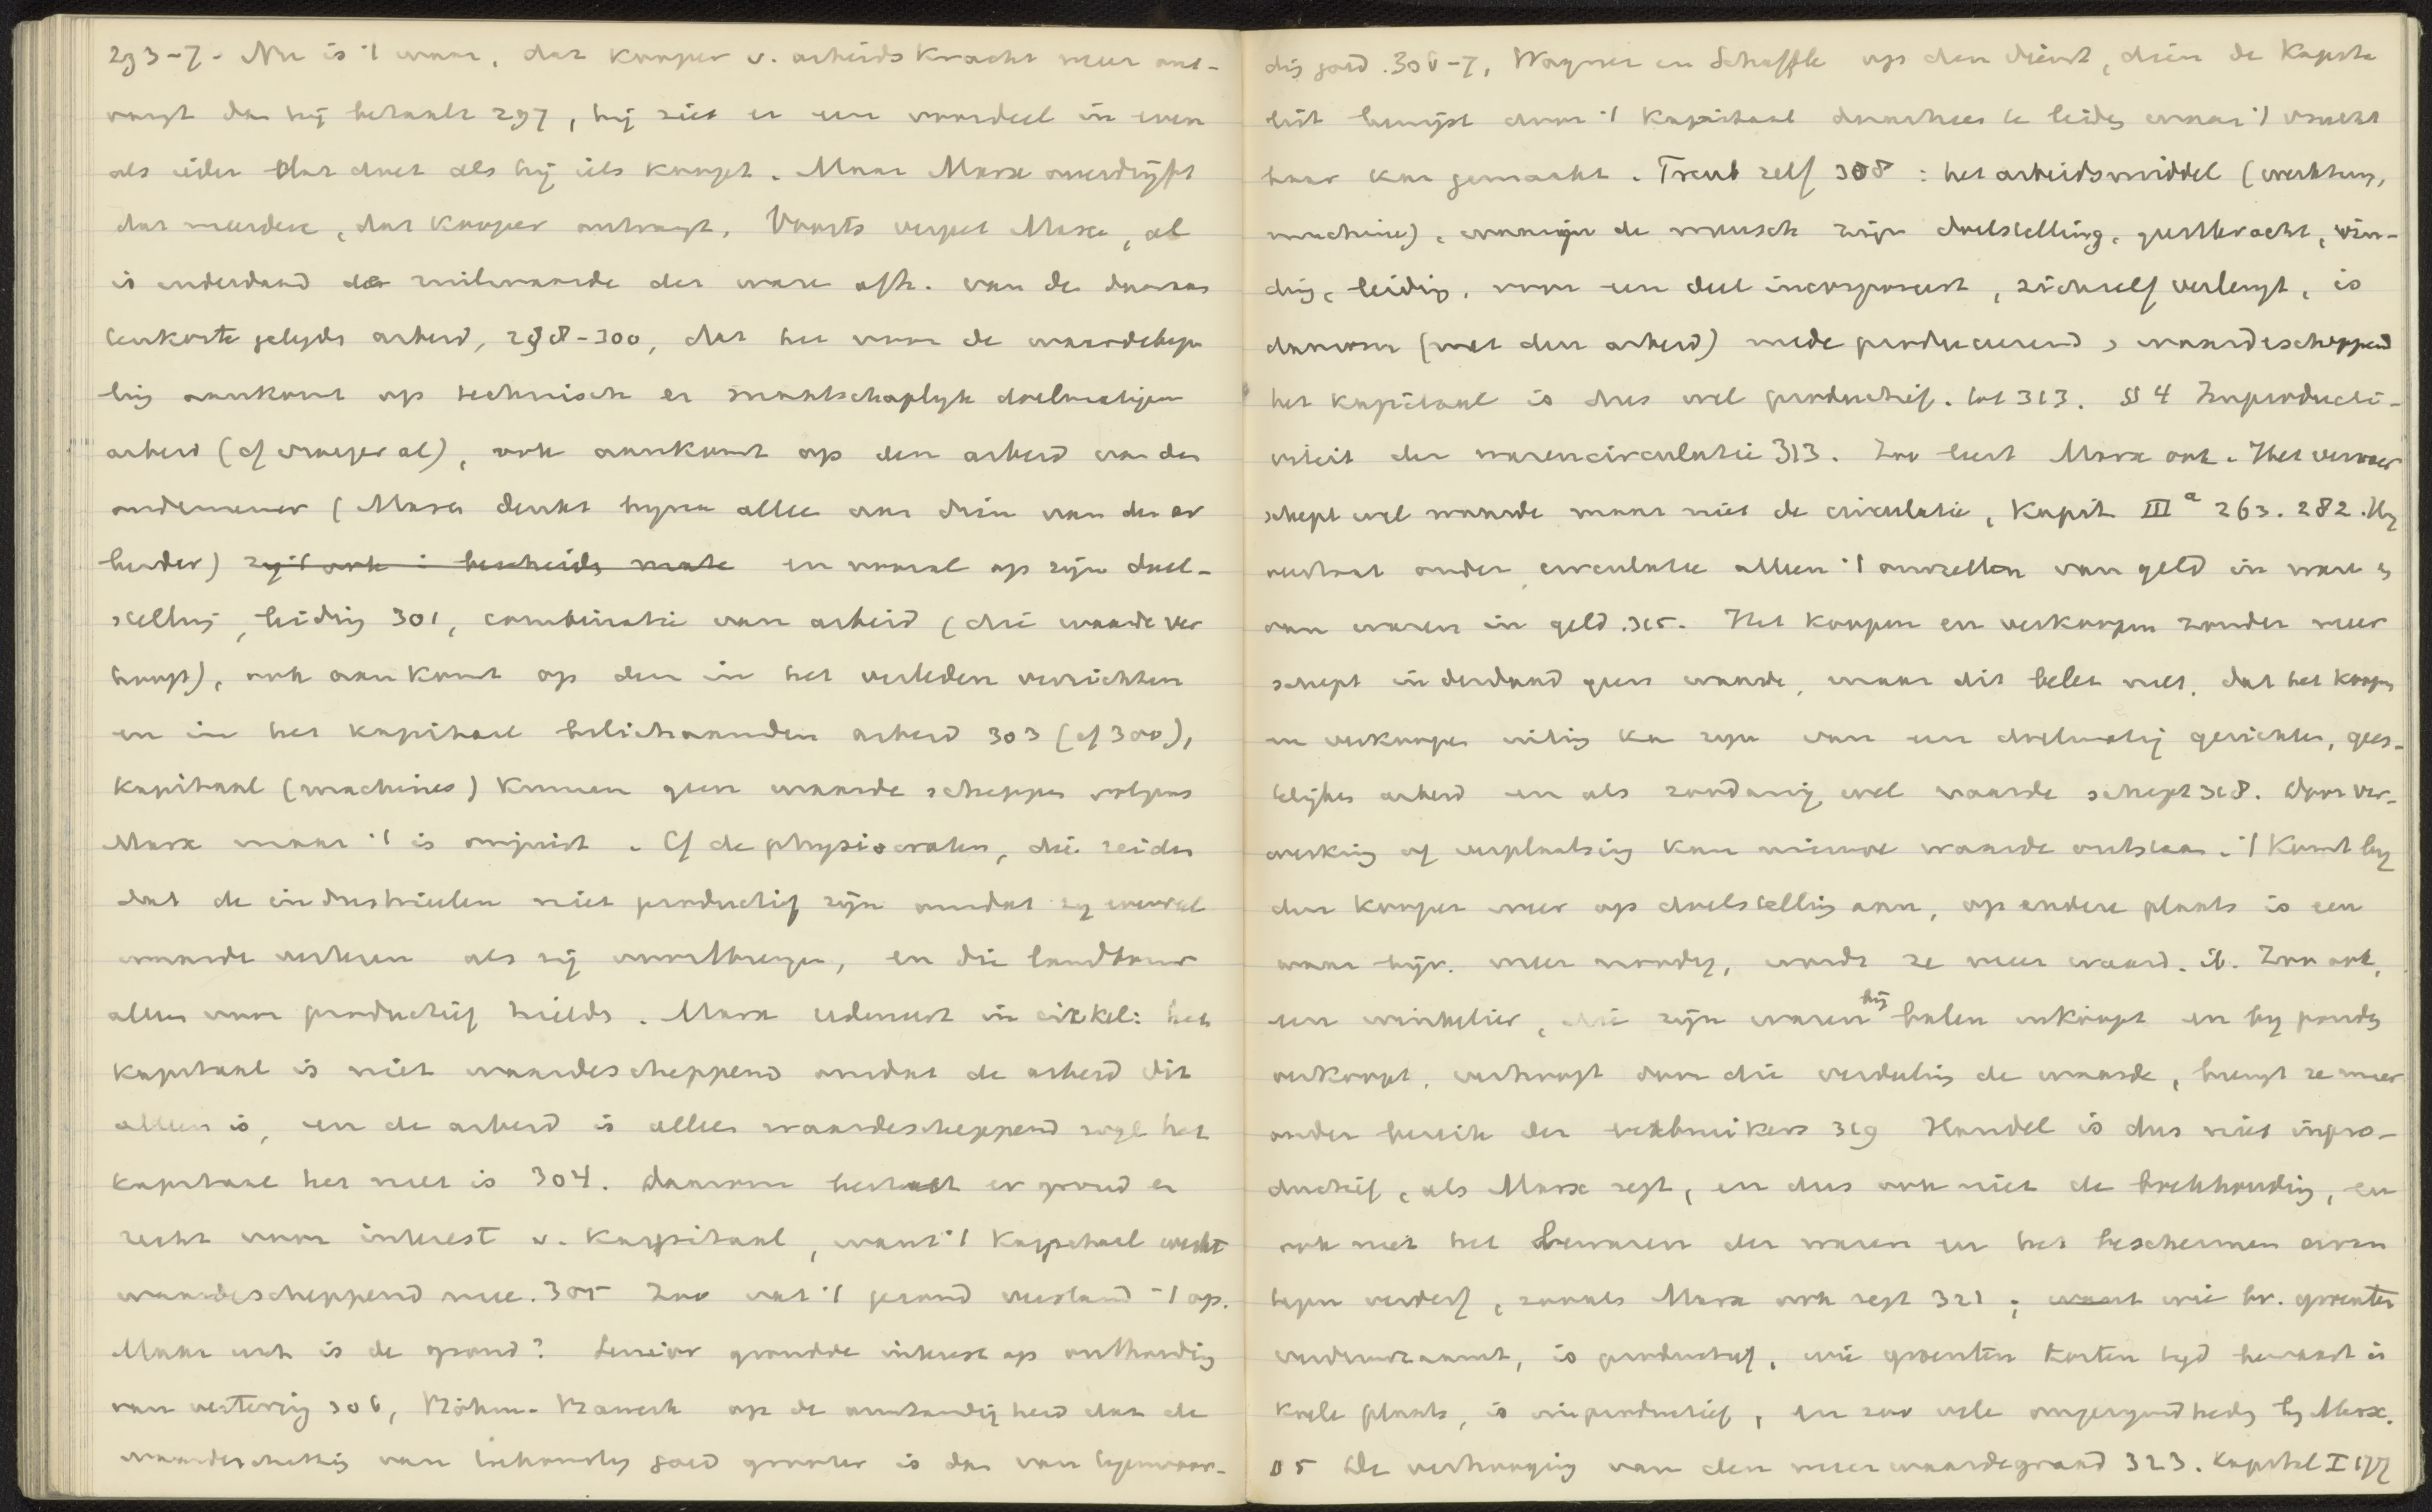 293-7. Nu is 't waar, dat kooper v. arbeidskracht meer ont-
vangt dan hij betaalt 297, hij ziet er een voordeel in even
als ieder dat doet als hij iets koopt. Maar Marx overdrijft
dat meerdere, dat kooper ontvangt. Voorts vergeet Marx, al
is inderdaad de ruilwaarde der ware afh. van de daaraan
tenkoste gelegde arbeid, 298-300, dat het voor de waardebepa
ling aankomt op technisch en maatschaplijk doelmatigen
arbeid (cf vroeger al), ook aankomt op den arbeid van den
ondernemer (Marx denkt bijna alleen aan dien van den ar
beider) zij 't ook in bescheiden mate en vooral op zijn doel-
stelling, leiding 301, combinatie van arbeid (die waarde ver
hoogt), ook aankomt op den in het verleden verrichten
en in het kapitaal belichaamden arbeid 303 (cf 300),
Kapitaal (machines) kunnen geen waarde scheppen volgens
Marx maar 't is onjuist. Cf de physiocraten, die zeiden
dat de industrieelen niet productief zijn omdat zij evenveel
waarde verteren als zij voortbrengen, en die landbouw
alleen voor productief hielden. Marx redeneert in cirkel: het
kapitaal is niet waardescheppend omdat de arbeid dit
alleen is, en de arbeid is alleen waardescheppend wyl het
kapitaal het niet is 304. Daarom bestaat er grond en
recht voor interest v. kapitaal, want 't kapitaal werkt
waardescheppend mee. 305 Zoo vat 't gezond verstand 't op.
Maar wat is de grond? Senior grondde interest op onthouding
van vertering 306, Böhm-Bawerk op de omstandigheid dat de
waardeschatting van toekomstig goed grooter is dan van tegenwoor-
dig goed. 306-7, Wagner en Schäffle op den dienst, dien de kapita
list bewijst door 't kapitaal daarheen te leiden waar 't vrucht
baar kan gemaakt. Treub zelf 308: het arbeidsmiddel (werktuig,
machine), waarin de mensch zijn doelstelling, geestkracht, vin-
ding, leiding, voor een deel incorporeert, zichzelf verlengt, is
daarom (met den arbeid) mede produceerend, waardescheppend
het kapitaal is dus wel productief. tot 313. § 4 Improducti-
viteit der warencirculatie 313. Zoo leert Marx ook. Het vervoer
schept wel waarde maar niet de circulatie, Kapit. III a 263. 282. Hij
verstaat onder circulatie alleen 't omzetten van geld in ware en
van waren in geld. 315. Het koopen en verkoopen zonder meer
schept inderdaad geen waarde, maar dit belet niet, dat het koopen
en verkoopen uiting kan zijn van een doelmatig gerichten, gees-
telijken arbeid en als zoodanig wel waarde schept 318. Door ver-
werking of verplaatsing kan nieuwe waarde ontstaan. 't Komt bij
den kooper weer op doelstelling aan, op andere plaats is een
waar bijv. meer noodig, wordt ze meer waard. ib. Zoo ook,
een winkelier, die zijn waren bij balen inkoopt en bij ponden
verkoopt, verhoogt door die verdeeling de waarde, brengt ze meer
onder bereik der verbruikers 319 Handel is dus niet inpro-
ductief, als Marx zegt, en dus ook niet de boekhouding, en
ook niet het bewaren der waren en het beschermen ervan
tegen verderf, zooals Marx ook zegt 321; want wie bv. groenten
verduurzaamt, is productief, wie groenten korten tijd bewaart in
koele plaats, is inproductief, en zoo vele ongerijmdheden bij Marx.
§ 5 De verhooging van den meerwaardegraad 323. Kapital I 177